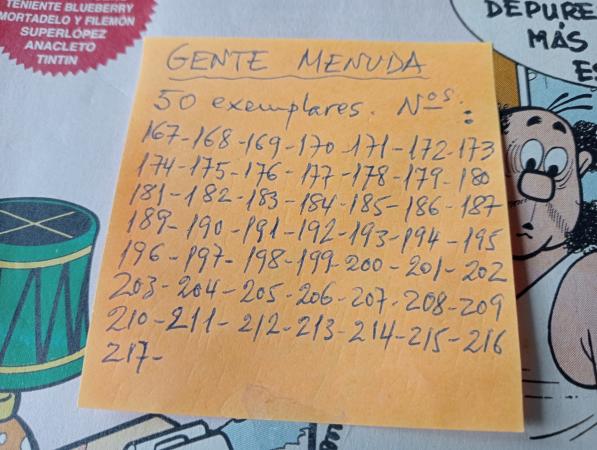 TENIENTE BLUEBERRY
MORTADELO Y FILEMÓN
SUPERLÓPEZ
ANACLETO
TINTIN
DEPURE
MÁS
ES
GENTE MENUDA
50 exemplares. Nos:
167-168-169-170-171-172-173
174-175-176-177-178-179-180
181-182-183-184-185-186-187
189-190-191-192-193-194-195
196-197-198-199-200-201-202
203-204-205-206-207-208-209
210-211-212-213-214-215-216
217-